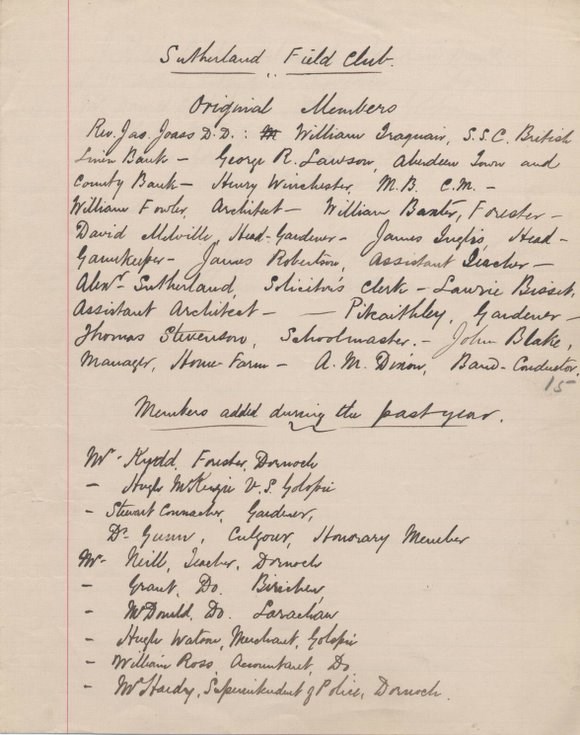 Sutherland Field Club.
Original Members
Rev. Jas. Joass D.D.: William Traquair, S.S.C. British
Linen Bank – George R. Lawson, Aberdeen Town and
County Bank – Henry Winchester, M.B. C.M. –
William Fowler, Architect – William Baxter, Forester –
David Melville, Head-Gardener – James Inglis, Head-
Gamekeeper – James Robertson, Assistant Teacher –
Alexr. Sutherland, Solicitor's Clerk – Lawrie Bisset,
Assistant Architect – — Pitcaithley, Gardener –
Thomas Stevenson, Schoolmaster. – John Blake,
Manager, Home-Farm – A. M. Dixon, Band-Conductor.
15
Members added during the past year.
Mr – Kydd, Forester, Dornoch
– Hugh McKenzie V.S. Golspie
– Stewart Gardener,
Dr. Gunn, Culgower, Honorary Member
Mr – Neill, Teacher, Dornoch
– Grant, Do. Birichen
– McDonald, Do. Larachan
– Hugh Watson, Merchant, Golspie
– William Ross, Accountant, Do
– McHardy, Superintendent of Police, Dornoch.